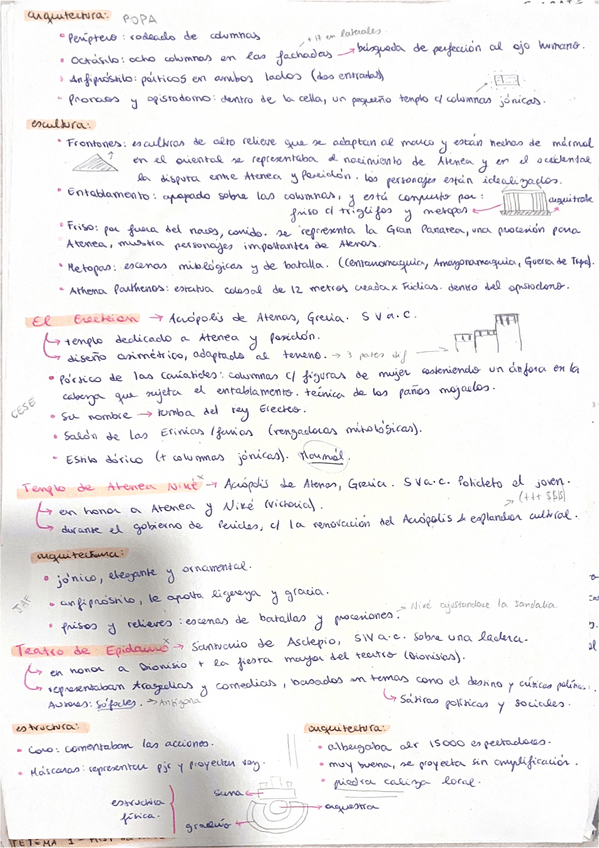 arquitectura: POPA
• Períptero: rodeado de columnas + 17 en laterales
• Octástilo: ocho columnas en las fachadas → búsqueda de perfección al ojo humano.
• Anfipróstilo: pórticos en ambos lados (dos entradas)
• Pronaos y opistodomo: dentro de la cella, un pequeño templo c/ columnas jónicas.
escultura:
• Frontones: esculturas de alto relieve que se adaptan al marco y están hechas de mármol
en el oriental se representaba el nacimiento de Atenea y en el occidental
la disputa entre Atenea y Poseidón. los personajes están idealizados.
• Entablamento: apoyado sobre las columnas, y está compuesto por:
friso c/ triglifos y metopas ← → arquitrabe
• Friso: por fuera del naos, corrido. se representa la Gran Panatea, una procesión para
Atenea, muestra personajes importantes de Atenas.
• Metopas: escenas mitológicas y de batalla. (Centauromaquia, Amazonomaquia, Guerra de Troya).
• Athena Parthenos: estatua colosal de 12 metros creada x Fidias. dentro del opistodomo.
El Erecteion → Acrópolis de Atenas, Grecia. S V a.C.
↳ templo dedicado a Atenea y Posidón.
↳ diseño asimétrico, adaptado al terreno. → 3 partes dif →
• Pórtico de las Cariátides: columnas c/ figuras de mujer sosteniendo un ánfora en la
cabeza que sujeta el entablamento. técnica de los paños mojados.
CESE
• Su nombre → tumba del rey Erecteo.
• Salón de las Erinias/furias (vengadoras mitológicas).
• Estilo dórico (+ columnas jónicas). Marmól.
Templo de Atenea Niké x → Acrópolis de Atenas, Grecia. S V a.C. Policleto el joven.
↳ en honor a Atenea y Niké (victoria). (+++ $$$)
↳ durante el gobierno de Pericles, c/ la renovación del Acrópolis & esplandor cultural.
arquitectura:
• jónico, elegante y ornamental.
JAF
• anfipróstilo, le aporta ligereza y gracia.
• frisos y relieves: escenas de batallas y procesiones. → Niké ajustandose la sandalia
Teatro de Epidauro x → Santuario de Asclepio, S IV a.C. sobre una ladera.
↳ en honor a Dionisio + la fiesta mayor del teatro (Dionisias).
↳ representaban tragedias y comedias, basados en temas como el destino y críticas políticas.
Autores: Sófocles. → Antígona ↳ Sátiras políticas y sociales.
estructura:
• Coro: comentaban las acciones.
• Máscaras: representan pjr y proyectan voz.
estructura física. } scena
orquestra
gradas
arquitectura:
• albergaba alr 15000 espectadores.
• muy buena, se proyecta sin amplificación.
• piedra caliza local.